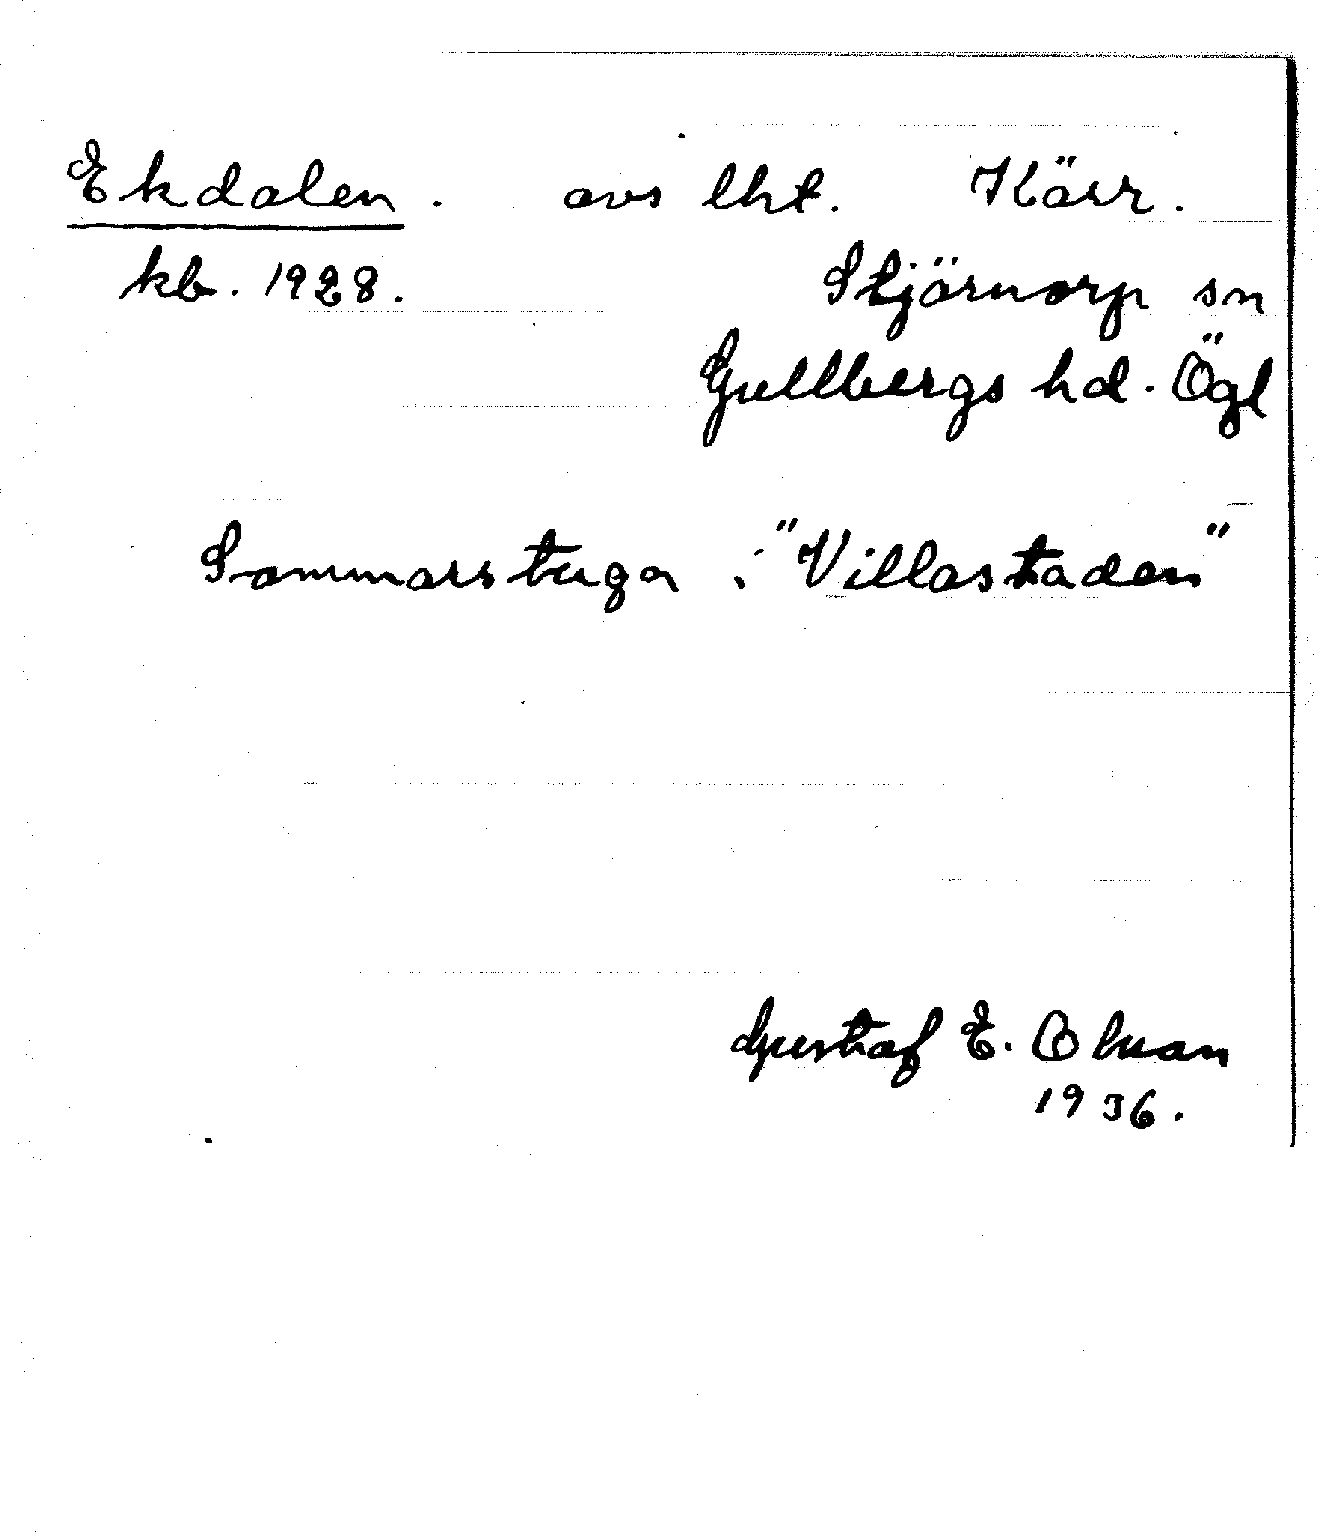 Ekdalen. avs lht. Kärr.
kb. 1928. Stjärnorp sn
Gullbergs hd. Ögl
Sommarstuga i "Villastaden"
Gustaf E. Olsson
1936.